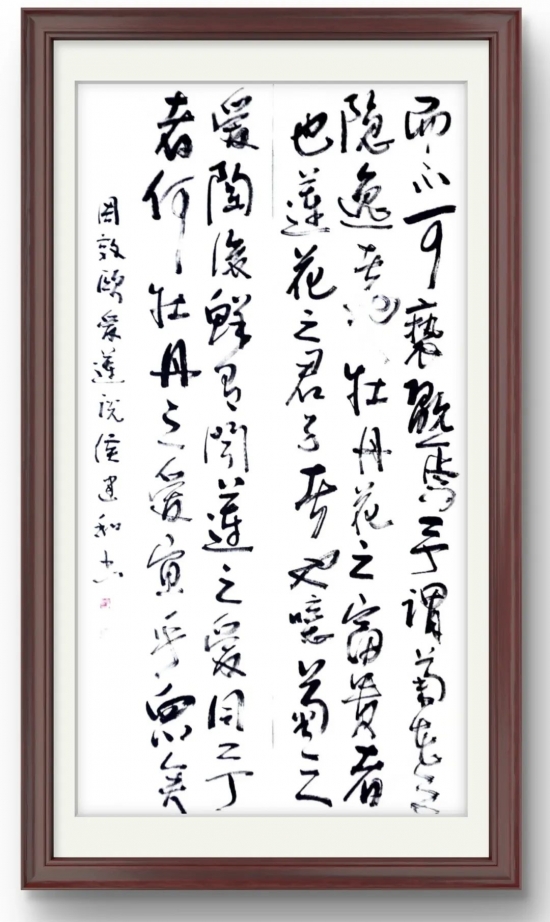 而不可褻翫焉予謂菊花之
隐逸者也牡丹花之富贵者
也蓮花之君子者也噫菊之
爱陶後鮮有闻蓮之爱同予
者何牡丹之爱宜乎眾矣
周敦頤爱蓮说侯建和书